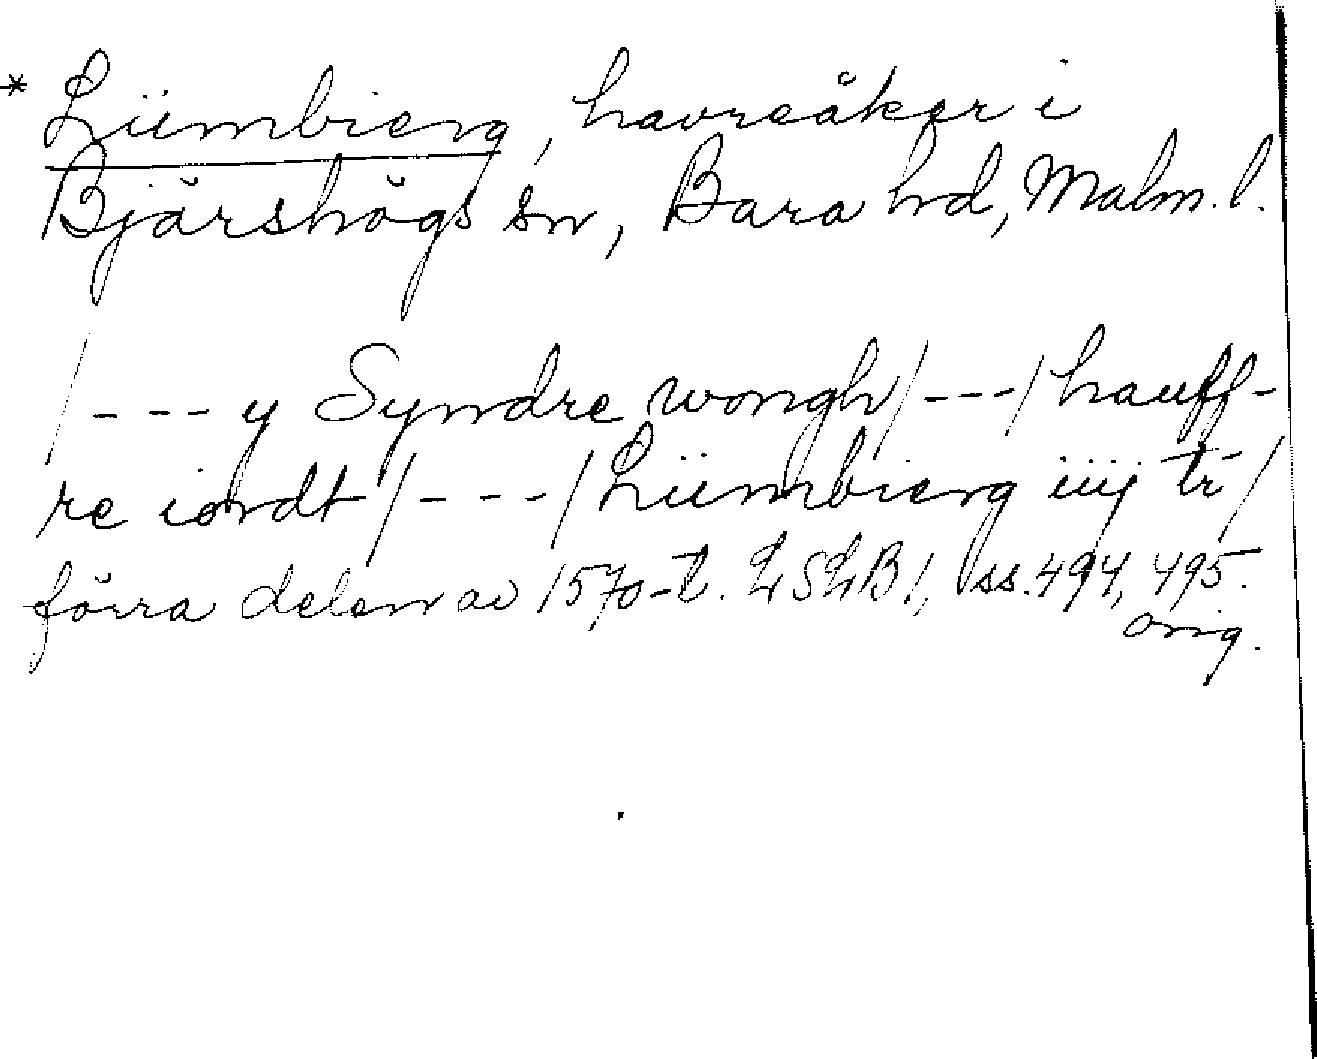 * Liimbierg, havreåker i
Bjärshögs sn, Bara hd, Malm. l.
/--- y Syndre wongh/---/hauff-
re iordt/---/Liimbierg iiij tr/
förra delen av 1570-t. LSLB 1, ss. 494, 495.
orig.